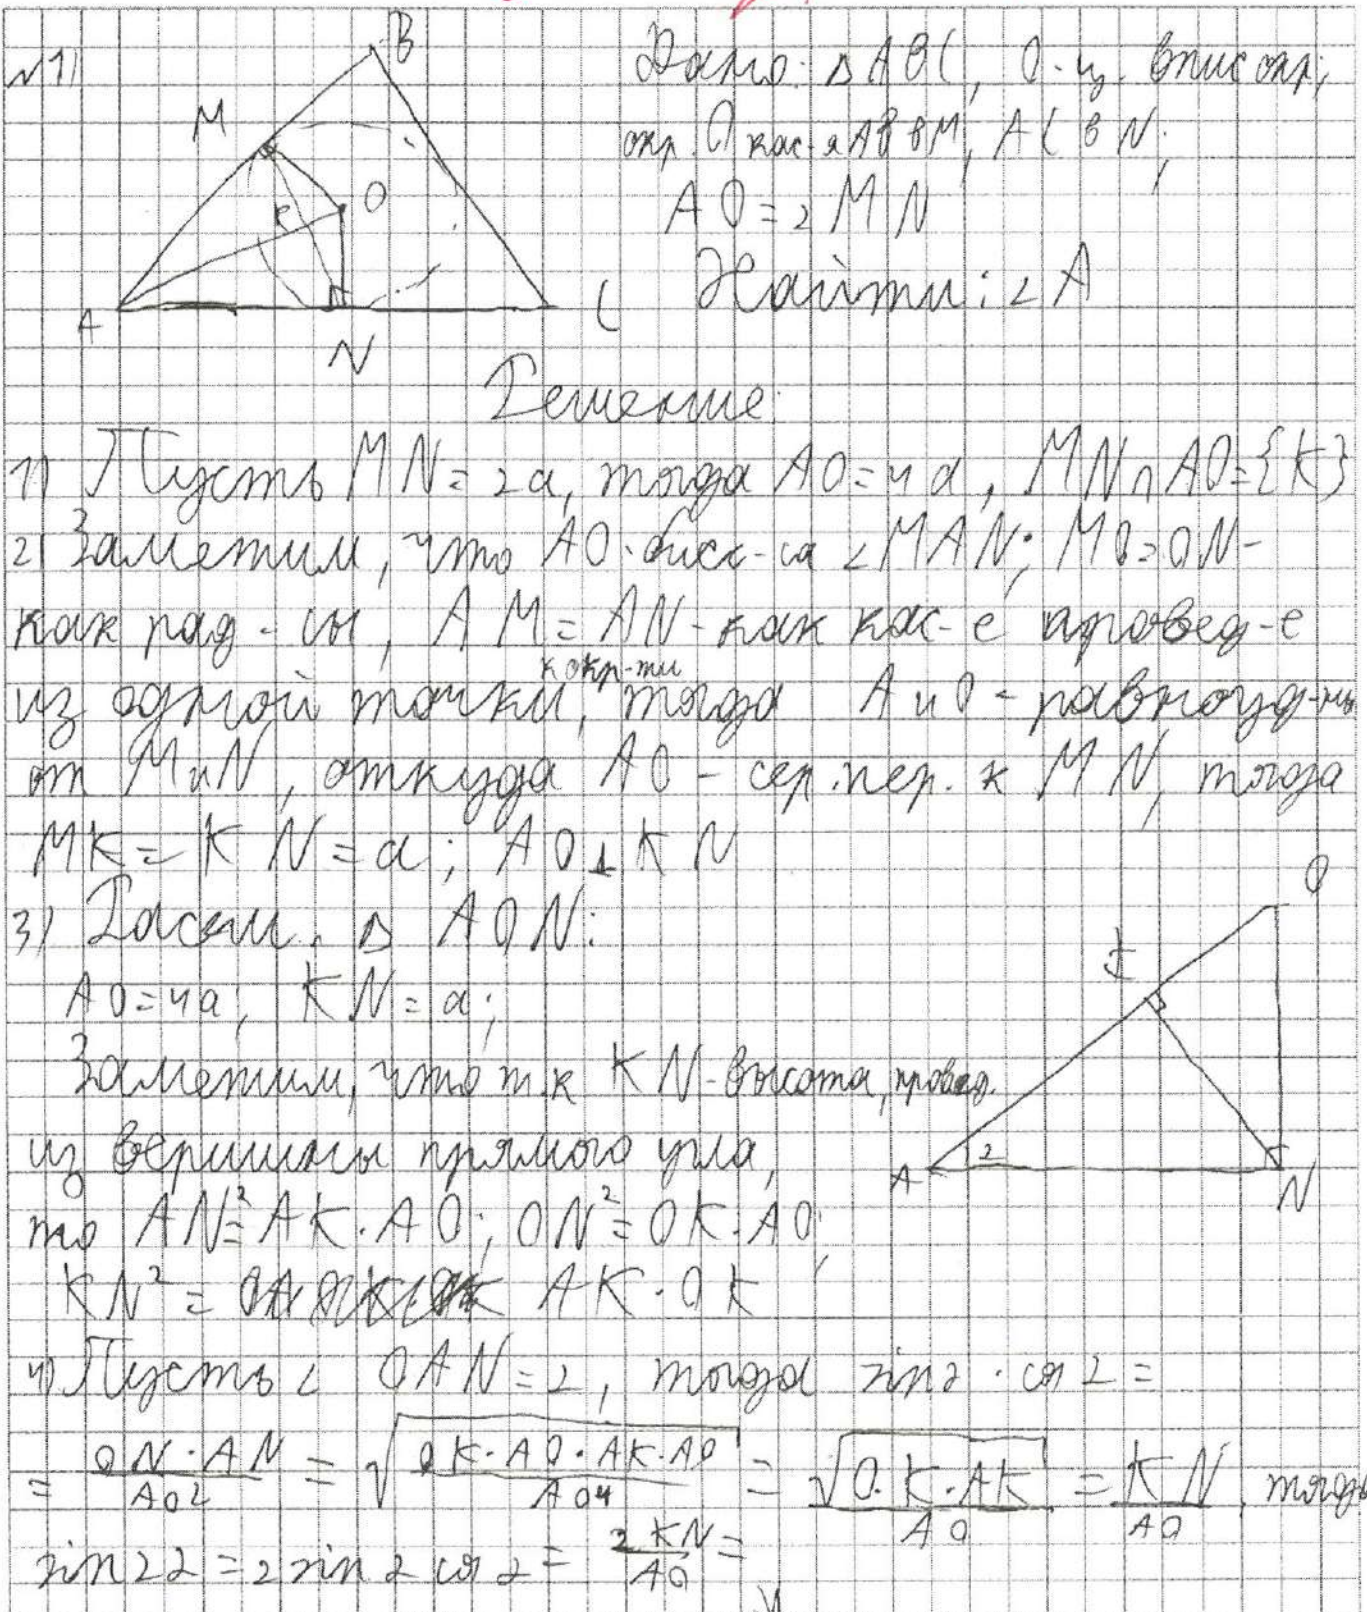 №1)
B
M
O
K
A
N
C
Дано: △ABC, O-ц. впис окр;
окр. O кас-я AB в M, AC в N;
AO=2MN
Найти: ∠A
Решение:
1) Пусть MN=2a, тогда AO=4a, MN∩AO={K}
2) Заметим, что AO-бисс-са ∠MAN; MO=ON-
как рад-сы, AM=AN-как кас-е провед-е
из одной точки к окр-ти, тогда A и O - равноуд-ны
от M и N, откуда AO - сер.пер. к MN, тогда
MK=KN=a; AO⊥KN
3) Рассм. △ AON:
AO=4a; KN=a;
Заметим, что т.к KN-высота, провед.
из вершины прямого угла,
то AN²=AK·AO; ON²=OK·AO;
KN²= AK·OK
O
K
A
α
N
4) Пусть ∠OAN=α, тогда sinα·cosα=
= ON·AN/AO² = √(OK·AO·AK·AO/AO⁴) = √(OK·AK)/AO = KN/AO, тогда
sin2α=2sinαcosα= 2KN/AO =